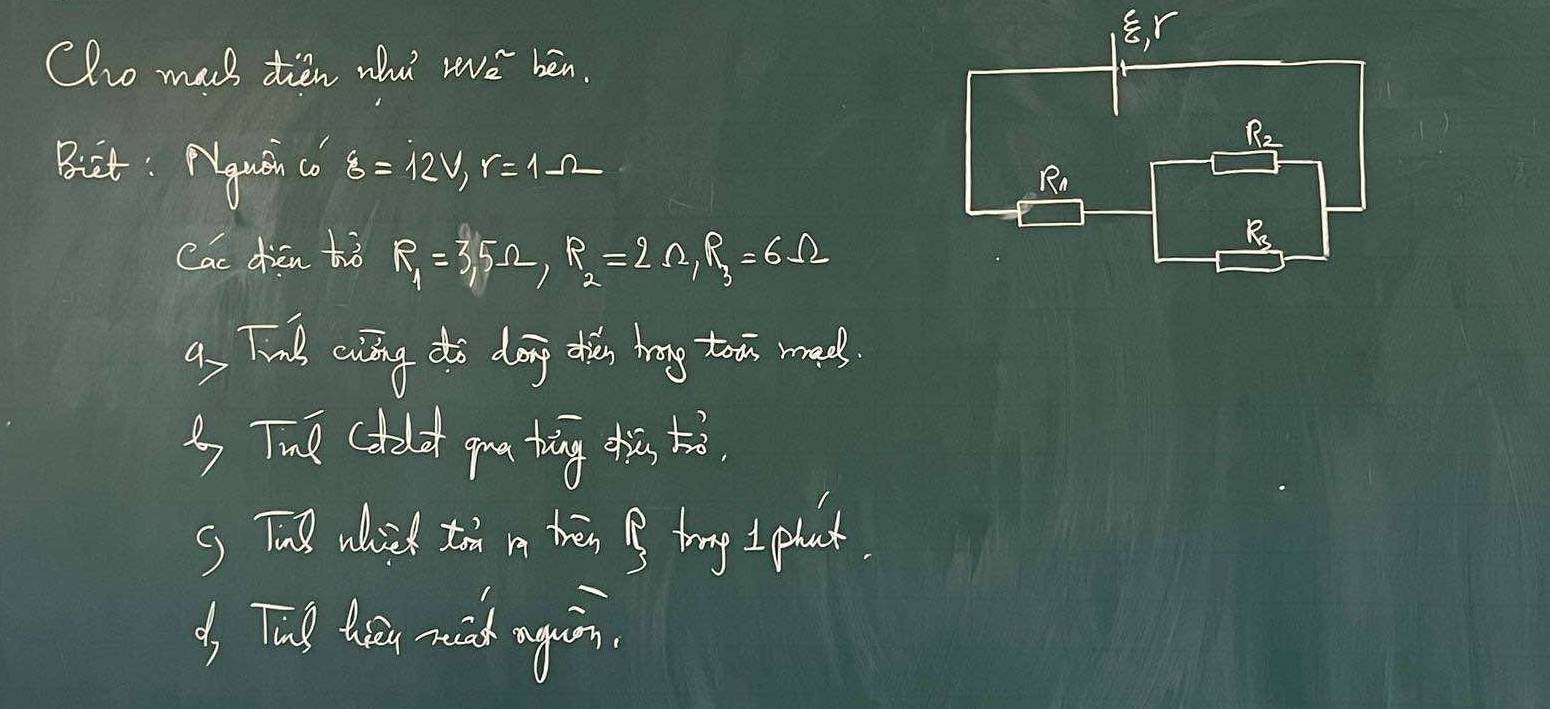 Cho mạch điện như vẽ bên.
ξ, r
Biết : Nguồn có ξ = 12V, r = 1Ω
R1
R2
R3
Các điện trở R₁ = 3,5Ω, R₂ = 2Ω, R₃ = 6Ω
a, Tính cường độ dòng điện trong toàn mạch.
b, Tính Cđdđ qua từng điện trở.
c, Tính nhiệt toả ra trên R₃ trong 1 phút.
d, Tính hiệu suất nguồn.